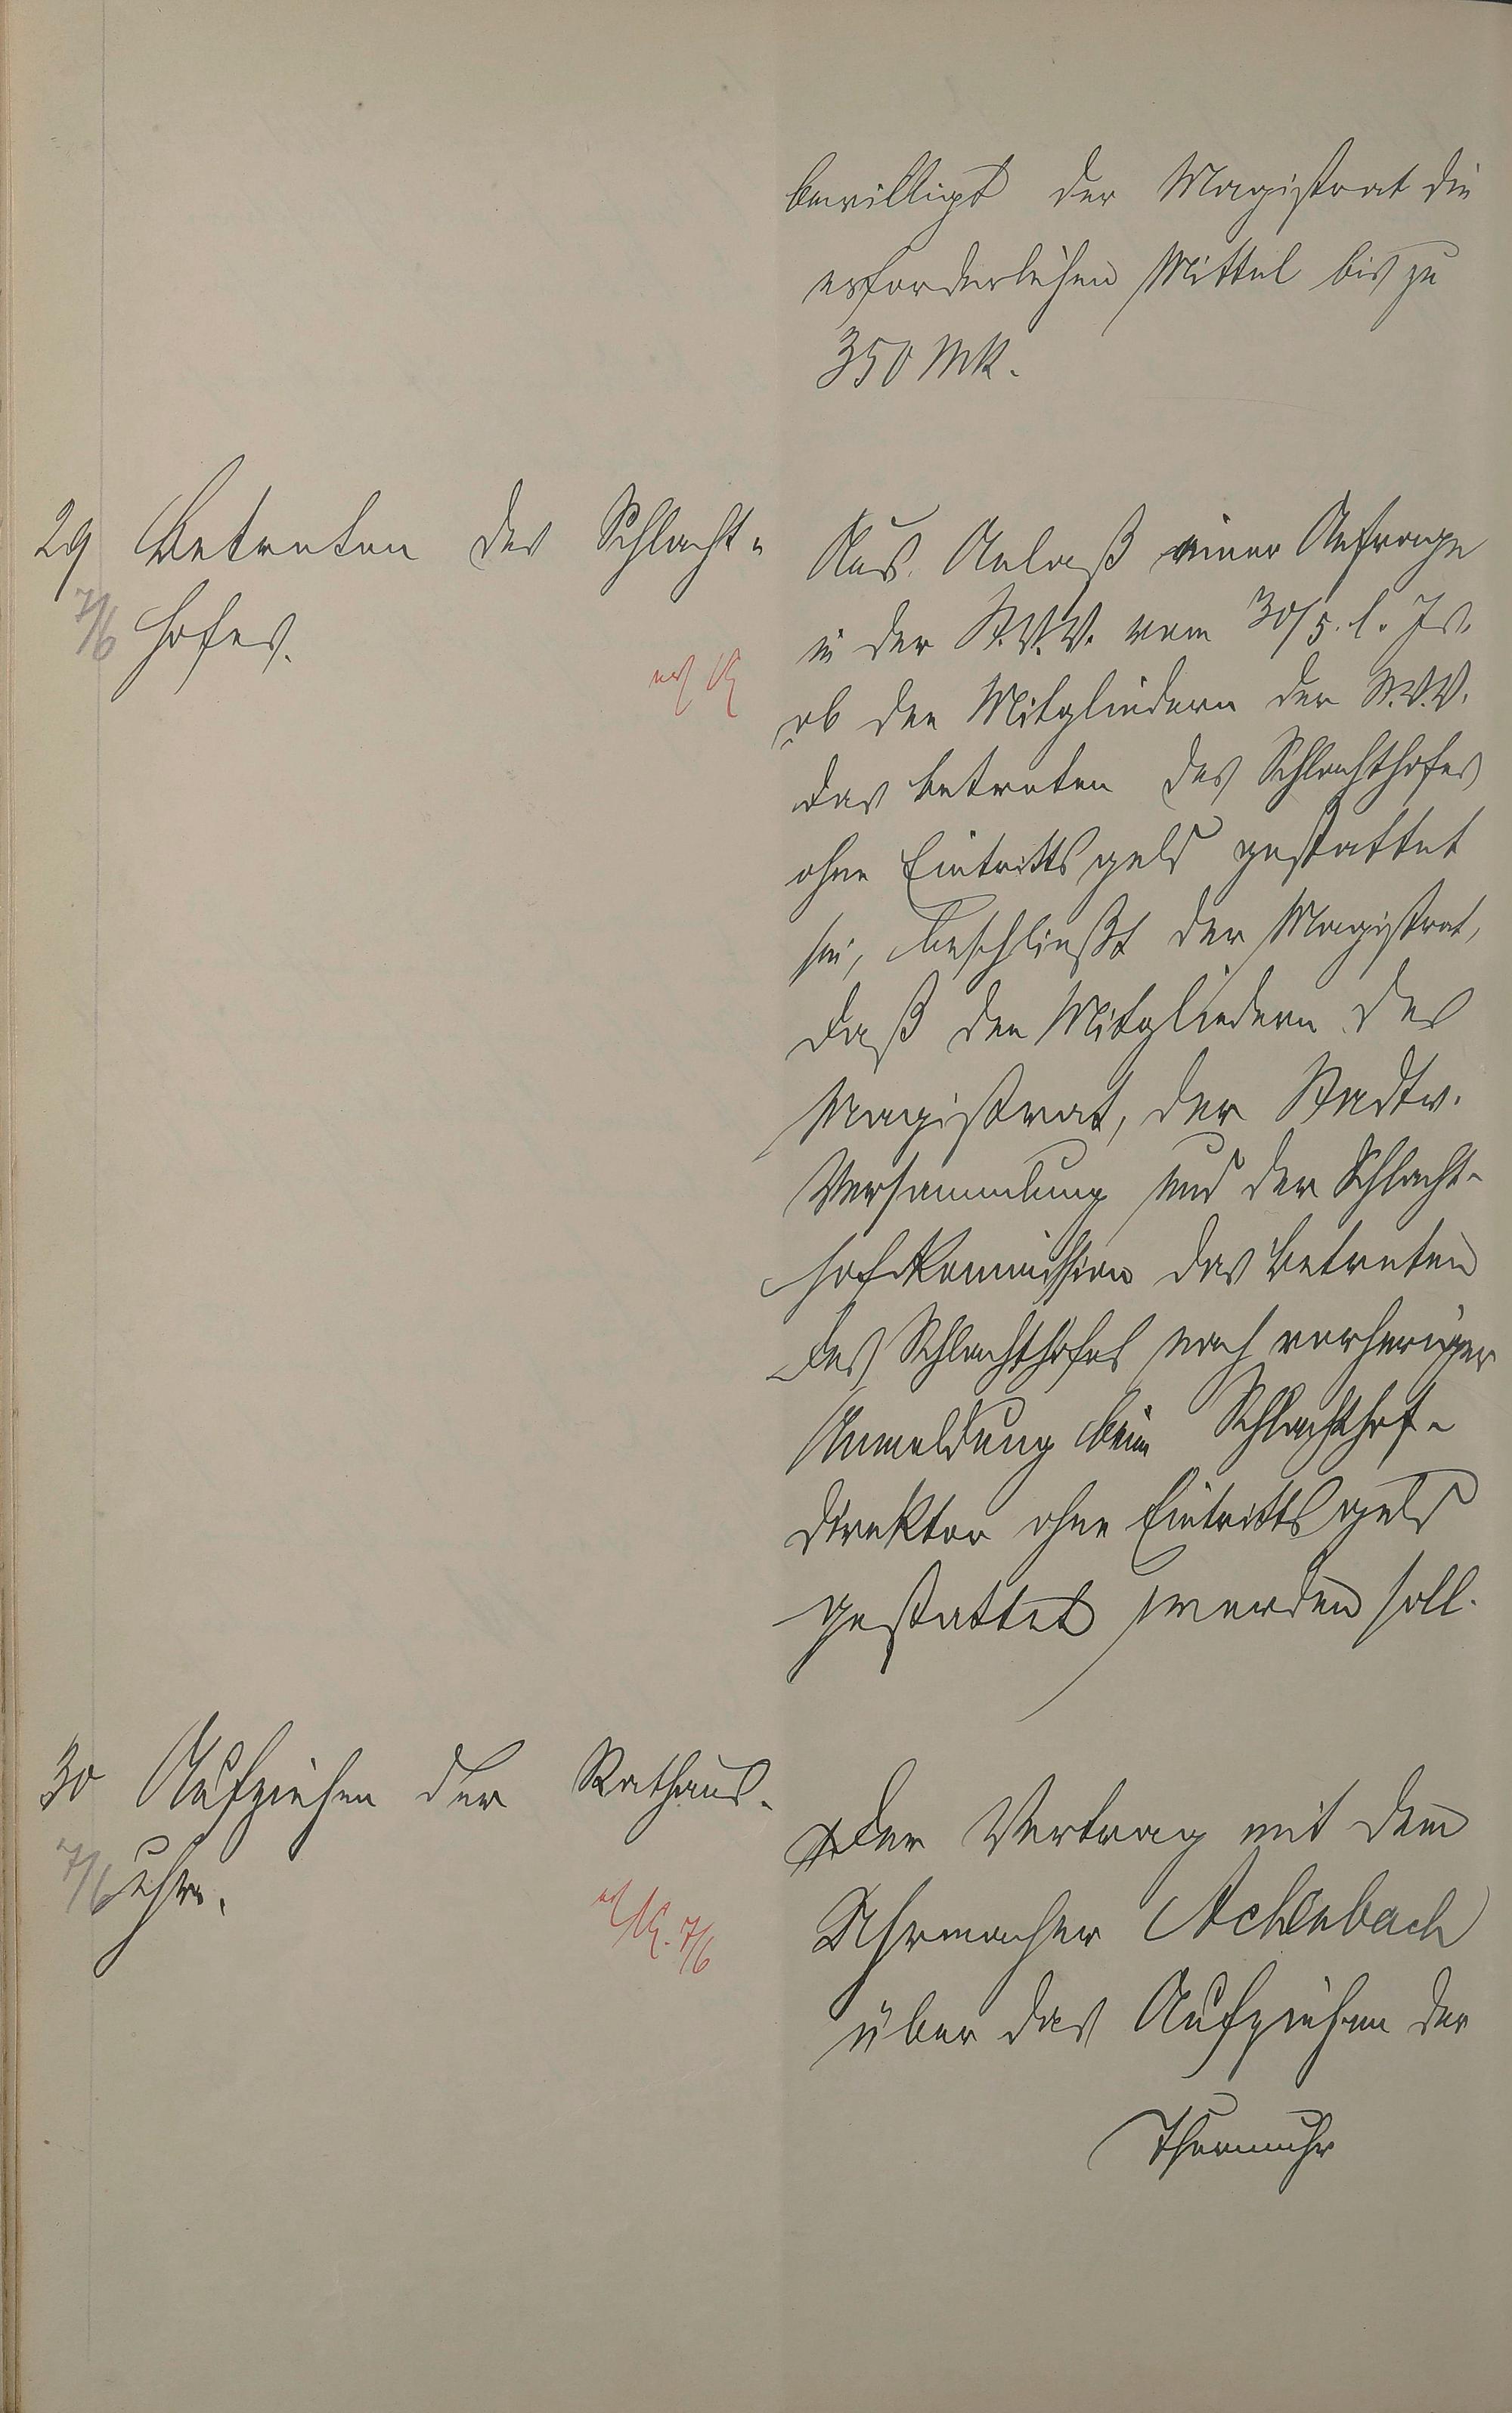 bewilligt der Magistrat die
erforderlichen Mittel bis zu
350 Mk.
29 Betreten des Schlacht-
7/6 hofes.
Aus Anlaß einer Anfrage
in der St.V.V. vom 30/5. l. Js.
ob den Mitgliedern der St.V.V.
das Betreten des Schlachthofes
ohne Eintrittsgeld gestattet
sei, beschließt der Magistrat,
daß den Mitgliedern des
Magistrat, der Stadtv.
Versammlung und der Schlacht-
hofkommission das Betreten
des Schlachthofes nach vorheriger
Anmeldung beim Schlachthof-
direktor ohne Eintrittsgeld
gestattet werden soll.
30 Aufziehen der Rathaus-
7/6 uhr.
7/6
Der Vertrag mit dem
Uhrmacher Achenbach
über das Aufziehen der
Thurmuhr